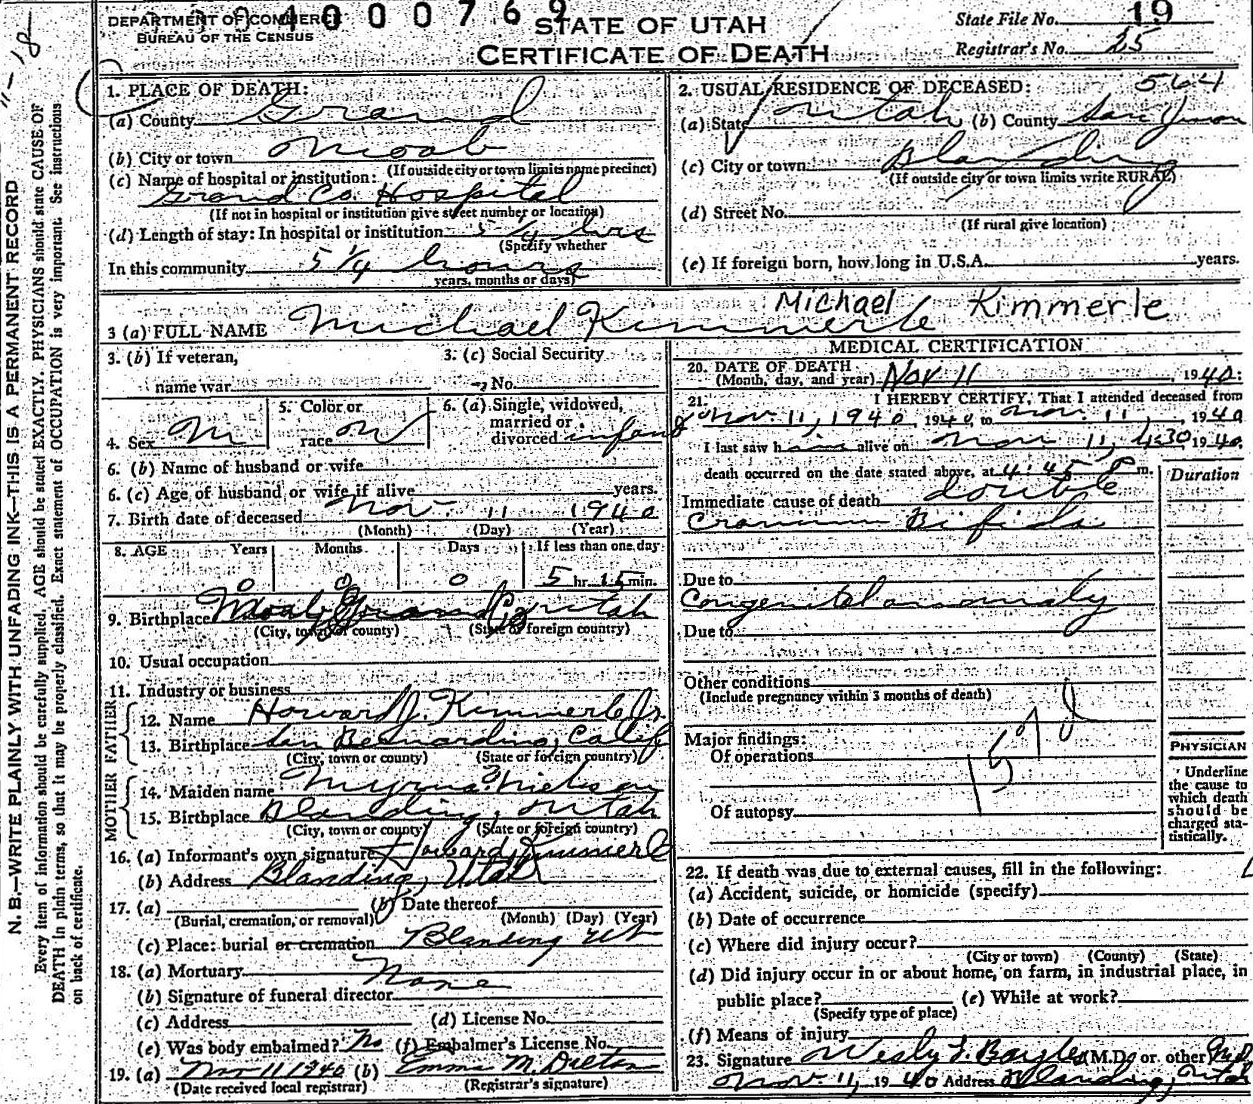 DEPARTMENT OF COMMERCE
BUREAU OF THE CENSUS
4 0 0 0 7 6 9
STATE OF UTAH
CERTIFICATE OF DEATH
State File No. 19
Registrar's No. 25
11-18
N. B.—WRITE PLAINLY WITH UNFADING INK—THIS IS A PERMANENT RECORD
Every item of information should be carefully supplied. AGE should be stated EXACTLY. PHYSICIANS should state CAUSE OF
DEATH in plain terms, so that it may be properly classified. Exact statement of OCCUPATION is very important. See instructions
on back of certificate.
1. PLACE OF DEATH:
(a) County Grand
(b) City or town Moab
(If outside city or town limits name precinct)
(c) Name of hospital or institution:
Grand Co. Hospital
(If not in hospital or institution give street number or location)
(d) Length of stay: In hospital or institution 5 1/4 hrs
(Specify whether
In this community 5 1/4 hours
years, months or days)
2. USUAL RESIDENCE OF DECEASED: 564
(a) State Utah (b) County San Juan
(c) City or town Blanding
(If outside city or town limits write RURAL)
(d) Street No.
(If rural give location)
(e) If foreign born, how long in U.S.A. years.
Michael Kimmerle
3 (a) FULL NAME Michael Kimmerle
3. (b) If veteran,
name war
3. (c) Social Security
No.
4. Sex M
5. Color or
race W
6. (a) Single, widowed,
married or
divorced infant
6. (b) Name of husband or wife
6. (c) Age of husband or wife if alive years.
7. Birth date of deceased Nov 11 1940
(Month) (Day) (Year)
8. AGE Years Months Days If less than one day
0 0 0 5 hr. 15 min.
9. Birthplace Moab Grand Co Utah
(City, town or county) (State or foreign country)
10. Usual occupation
11. Industry or business
FATHER
12. Name Howard J. Kimmerle Jr.
13. Birthplace San Bernardino, Calif
(City, town or county) (State or foreign country)
MOTHER
14. Maiden name Myrna Nielson
15. Birthplace Blanding, Utah
(City, town or county) (State or foreign country)
16. (a) Informant's own signature Howard Kimmerle
(b) Address Blanding, Utah
17. (a) (b) Date thereof
(Burial, cremation, or removal) (Month) (Day) (Year)
(c) Place: burial or cremation Blanding Ut
18. (a) Mortuary None
(b) Signature of funeral director
(c) Address (d) License No.
(e) Was body embalmed? No (f) Embalmer's License No.
19. (a) Nov 11 1940 (b) Emma M. Dalton
(Date received local registrar) (Registrar's signature)
MEDICAL CERTIFICATION
20. DATE OF DEATH
(Month, day, and year) Nov 11, 1940:
21. I HEREBY CERTIFY, That I attended deceased from
Nov. 11, 1940, 1940, to Nov. 11, 1940
I last saw him alive on Nov 11, 4:30 1940.
death occurred on the date stated above, at 4:45 P m.
Duration
Immediate cause of death double
Cranium Bifida
Due to
Congenital anomaly
Due to
Other conditions
(Include pregnancy within 3 months of death)
Major findings:
Of operations
157d
Of autopsy
PHYSICIAN
Underline
the cause to
which death
should be
charged sta-
tistically.
22. If death was due to external causes, fill in the following:
(a) Accident, suicide, or homicide (specify)
(b) Date of occurrence
(c) Where did injury occur?
(City or town) (County) (State)
(d) Did injury occur in or about home, on farm, in industrial place, in
public place? (e) While at work?
(Specify type of place)
(f) Means of injury
23. Signature Wesly (M.D. or other M.D.
Nov. 11, 1940 Address Blanding, Utah